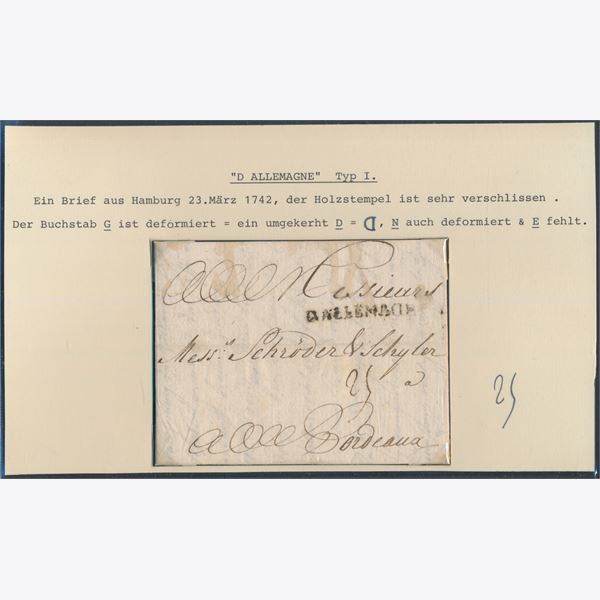 "D ALLEMAGNE" Typ I.
Ein Brief aus Hamburg 23.März 1742, der Holzstempel ist sehr verschlissen .
Der Buchstab G ist deformiert = ein umgekerht D = D, N auch deformiert & E fehlt.
Messieurs
D ALLEMAG
Mess.rs Schröder & Schyler
25 a
Bordeaux
25